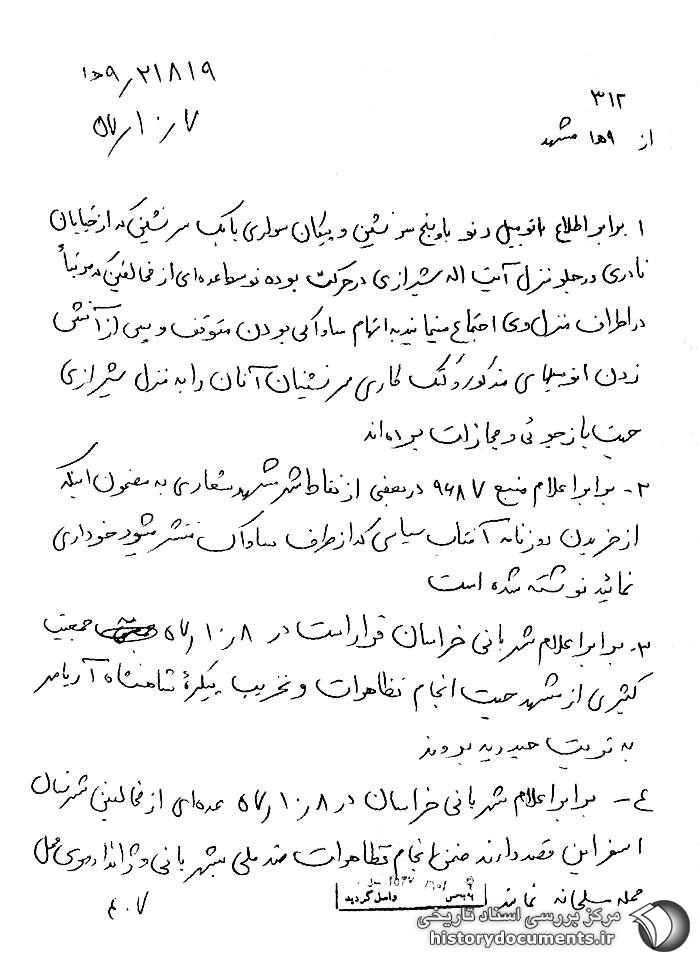 ۹ه۱/۲۱۸۱۹
۵۷/۱۰/۷
۳۱۲
از ۹ه۱ مشهد
۱ برابر اطلاع اتومبیل رنو با پنج سرنشین و پیکان سواری با یک سرنشین که از خیابان
نادری در جلو منزل آیت اله شیرازی در حرکت بوده توسط عده‌ای از مخالفین که مرتباً
در اطراف منزل وی اجتماع مینمایند به اتهام ساواکی بودن متوقف و پس از آتش
زدن اتومبیلهای مذکور و کتک کاری سرنشینان آنان را به منزل شیرازی
جهت بازجوئی و مجازات برده‌اند
۲- برابر اعلام منبع ۹۶۸۷ در بعضی از نقاط شهر مشهد شعاری به مضمون اینکه
از خریدن روزنامه آفتاب سیاسی که از طرف ساواک منتشر میشود خودداری
نمائید نوشته شده است
۳- برابر اعلام شهربانی خراسان قرار است در ۵۷/۱۰/۸ جمعیت
کثیری از مشهد جهت انجام تظاهرات و تخریب پیکرۀ شاهنشاه آریامهر
به تربت حیدریه بروند
۴- برابر اعلام شهربانی خراسان در ۵۷/۱۰/۸ عده‌ای از مخالفین شهرستان
اسفراین قصد دارند ضمن انجام تظاهرات ضد ملی بشهربانی و ژاندارمری محل
حمله مسلحانه نمایند
واصل گردید
۴۰۷
مرکز بررسی اسناد تاریخی
historydocuments.ir